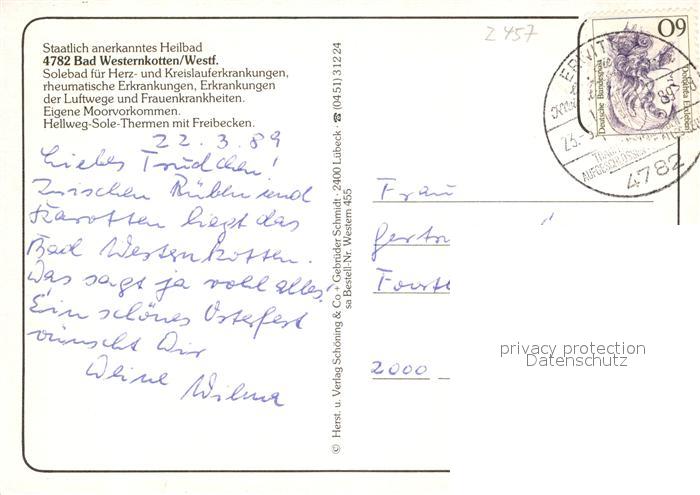 Z 457
Staatlich anerkanntes Heilbad
4782 Bad Westernkotten/Westf.
Solebad für Herz- und Kreislauferkrankungen,
rheumatische Erkrankungen, Erkrankungen
der Luftwege und Frauenkrankheiten.
Eigene Moorvorkommen.
Hellweg-Sole-Thermen mit Freibecken.
22.3.89
Liebes Trudchen!
Zwischen Rüben und
Karotten liegt das
Bad Westernkotten.
Das sagt ja wohl alles!
Ein schönes Osterfest
wünscht Dir
Deine Wilma
© Herst. u. Verlag Schöning & Co + Gebrüder Schmidt · 2400 Lübeck · ☎ (04 51) 3 12 24
sa Bestell-Nr. Western 455
60
Deutsche Bundespost
ERWITTE
23.
4782
Frau
Gertr
Forst
2000
privacy protection
Datenschutz